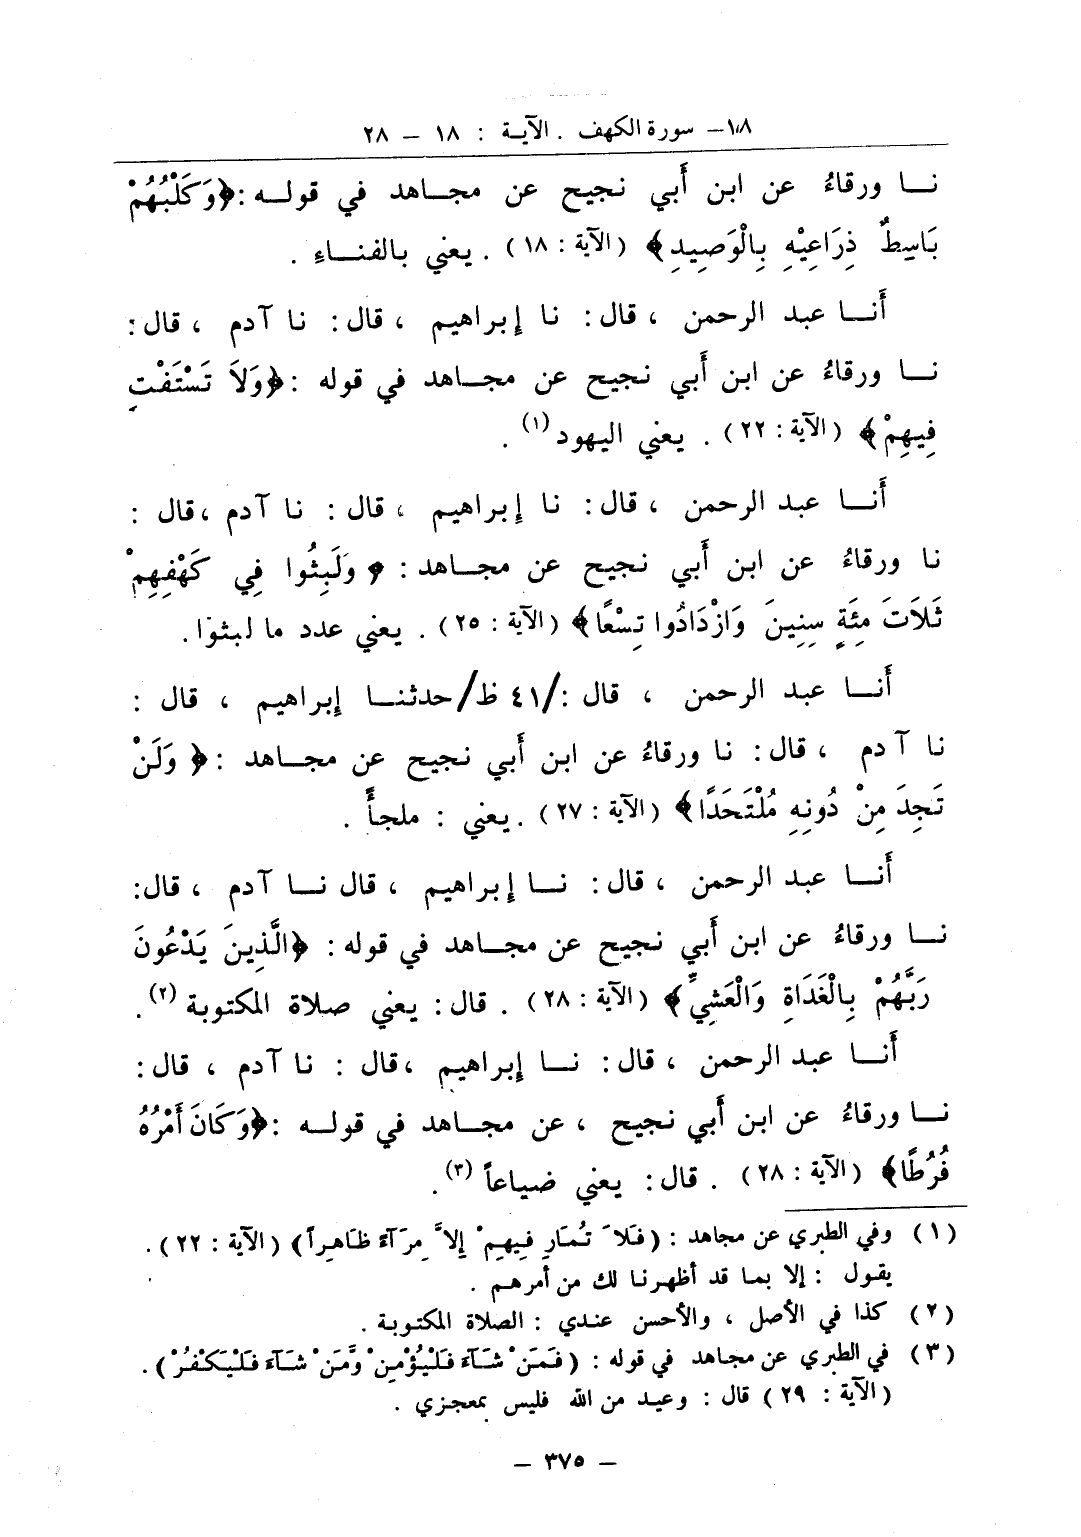 ١٨- سورة الكهف . الآية : ١٨ - ٢٨
نا ورقاءُ عن ابن أَبي نجيح عن مجاهد في قوله :﴿وَكَلْبُهُمْ
بَاسِطٌ ذِرَاعِيْهِ بِالْوَصِيدِ﴾ (الآية : ١٨) . يعني بالفناءِ .
أَنا عبد الرحمن ، قال : نا إبراهيم ، قال : نا آدم ، قال :
نا ورقاءُ عن ابن أَبي نجيح عن مجاهد في قوله :﴿وَلاَ تَسْتَفْتِ
فِيهِمْ﴾ (الآية : ٢٢) . يعني اليهود (١) .
أَنا عبد الرحمن ، قال : نا إبراهيم ، قال : نا آدم ، قال :
نا ورقاءُ عن ابن أَبي نجيح عن مجاهد : ﴿ وَلَبِثُوا فِي كَهْفِهِمْ
ثَلاَثَ مِئَةٍ سِنِينَ وَازْدَادُوا تِسْعًا﴾ (الآية : ٢٥) . يعني عدد ما لبثوا .
أَنا عبد الرحمن ، قال :/٤١ ظ/حدثنا إبراهيم ، قال :
نا آدم ، قال : نا ورقاءُ عن ابن أَبي نجيح عن مجاهد :﴿ وَلَنْ
تَجِدَ مِنْ دُونِهِ مُلْتَحَدًا﴾ (الآية : ٢٧) . يعني : ملجأً .
أَنا عبد الرحمن ، قال : نا إبراهيم ، قال نا آدم ، قال :
نا ورقاءُ عن ابن أَبي نجيح عن مجاهد في قوله : ﴿الَّذِينَ يَدْعُونَ
رَبَّهُمْ بِالْغَدَاةِ وَالْعَشِيِّ﴾ (الآية : ٢٨) . قال : يعني صلاة المكتوبة (٢) .
أَنا عبد الرحمن ، قال : نا إبراهيم ، قال : نا آدم ، قال :
نا ورقاءُ عن ابن أَبي نجيح ، عن مجاهد في قوله :﴿وَكَانَ أَمْرُهُ
فُرُطًا﴾ (الآية : ٢٨) . قال : يعني ضياعاً (٣) .
(١) وفي الطبري عن مجاهد : (فَلاَ تُمَارِ فِيهِمْ إِلاَّ مِرَآءً ظَاهِراً) (الآية : ٢٢) .
يقول : إلا بما قد أظهرنا لك من أمرهم .
(٢) كذا في الأصل ، والأحسن عندي : الصلاة المكتوبة .
(٣) في الطبري عن مجاهد في قوله : (فَمَنْ شَآءَ فَلْيُؤْمِنْ وَّمَنْ شَآءَ فَلْيَكْفُرْ) .
(الآية : ٢٩) قال : وعيد من الله فليس بمعجزي .
- ٣٧٥ -